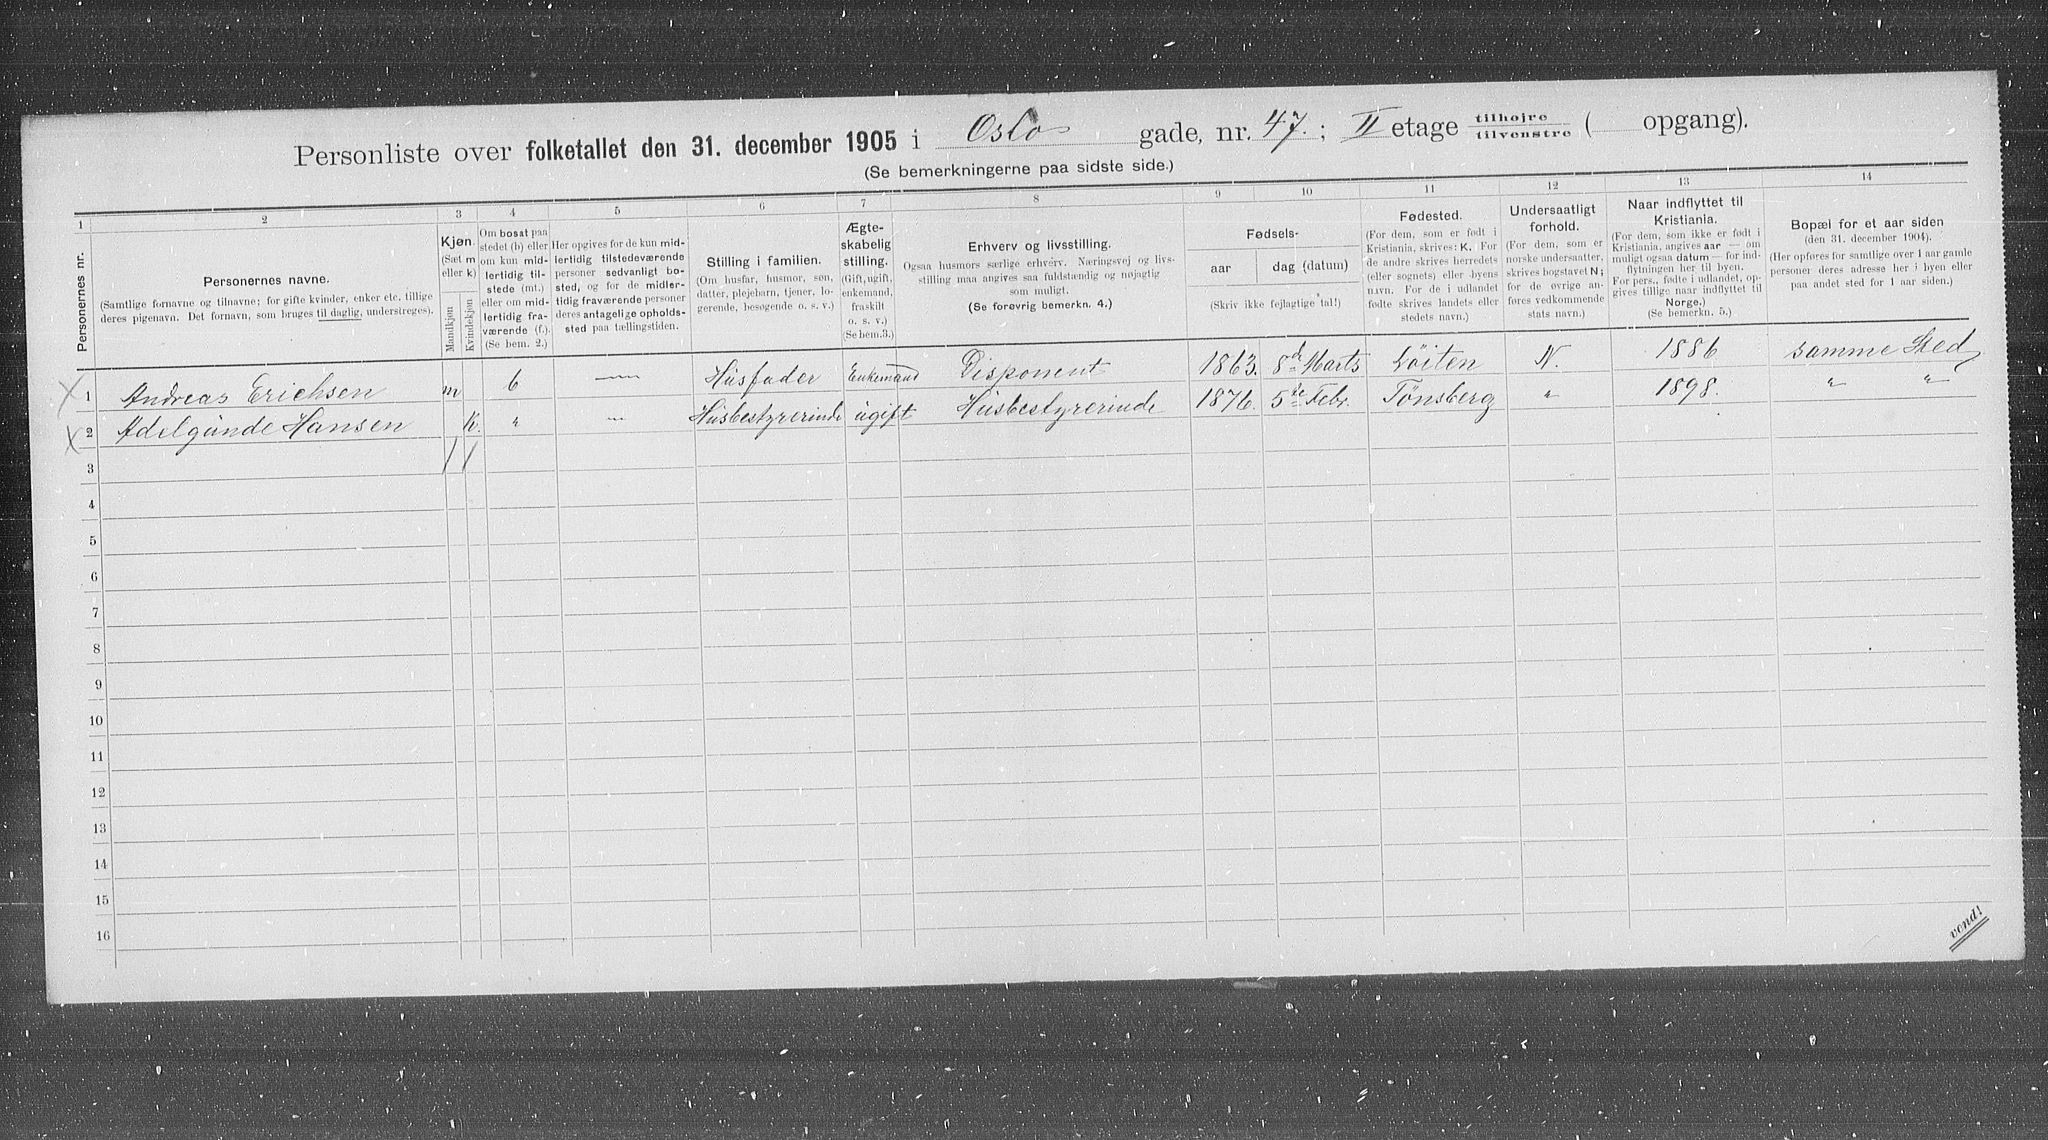 Personliste over folketallet den 31. december 1905 i Oslo gade, nr. 47. ; II etage tilhøjre tilvenstre ( opgang).
(Se bemerkningerne paa sidste side.)
1 2 3 4 5 6 7 8 9 10 11 12 13 14
Personernes nr.
Personernes navne.
(Samtlige fornavne og tilnavne; for gifte kvinder, enker etc. tillige
deres pigenavn. Det fornavn, som bruges til daglig, understreges).
Kjøn.
(Sæt m
eller k)
Mandkjøn
Kvindekjøn
Om bosat paa
stedet (b) eller
om kun mid-
lertidig til-
stede (mt.)
eller om mid-
lertidig fra-
værende (f.).
(Se bem. 2.)
Her opgives for de kun mid-
lertidig tilstedeværende
personer sedvanligt bo-
sted, og for de midler-
tidig fraværende personer
deres antagelige opholds-
sted paa tællingstiden.
Stilling i familien.
(Om husfar, husmor, søn,
datter, plejebarn, tjener, lo-
gerende, besøgende o. s. v.)
Ægte-
skabelig
stilling.
(Gift, ugift,
enkemand,
fraskilt
o. s. v.)
(Se bem.3.)
Erhverv og livsstilling.
Ogsaa husmors særlige erhverv. Næringsvej og livs-
stilling maa angives saa fuldstændig og nøjagtig
som muligt.
(Se forøvrig bemerkn. 4.)
Fødsels-
aar
dag (datum)
(Skriv ikke fejlagtige tal!)
Fødested.
(For dem, som er født i
Kristiania, skrives: K. For
de andre skrives herredets
(eller sognets) eller byens
navn. For de i udlandet
fødte skrives landets eller
stedets navn.)
Undersaatligt
forhold.
(For dem, som er
norske undersaatter,
skrives bogstavet N;
for de øvrige an-
føres vedkommende
stats navn.)
Naar indflyttet til
Kristiania.
(For dem, som ikke er født i
Kristiania, angives aar — om
muligt ogsaa datum — for ind-
flytningen her til byen.
For pers., fødte i udlandet, op-
gives tillige naar indflyttet til
Norge.)
(Se bemerkn. 5.)
Bopæl for et aar siden
(den 31. december 1904).
(Her opføres for samtlige over 1 aar gamle
personer deres adresse her i byen eller
paa andet sted for 1 aar siden.)
X 1 Andreas Erichsen m b — Husfader Enkemand Disponent 1863. 8d Marts Løiten N. 1886 samme Sted
X 2 Adelgunde Hansen K. " — Husbestyrerinde ugift Husbestyrerinde 1876. 5te Febr. Tønsberg " 1898. " "
3 1 1
4
5
6
7
8
9
10
11
12
13
14
15
16
vend!